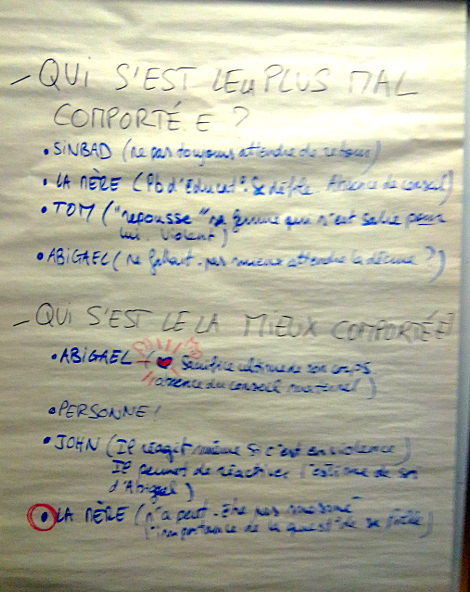 - QUI S'EST LE LA PLUS MAL
COMPORTÉ.E ?
• SINBAD (ne pas toujours attendre de retour)
• LA MÈRE (Pb d'Educat°. Se défile. Absence de conseil)
• TOM ("repousse" sa femme qui s'est salie pour
lui. Violent)
• ABIGAEL (ne fallait-pas mieux attendre la décrue ?)
- QUI S'EST LE LA MIEUX COMPORTÉE?
• ABIGAEL - ( Sacrifice ultime de son corps
absence du conseil maternel)
• PERSONNE !
• JOHN (Il réagit même si c'est en violence)
Il permet de réactiver l'estime de soi
d'Abigael)
• LA MÈRE (n'a peut-être pas mesuré
l'importance de la quest° de sa fille)